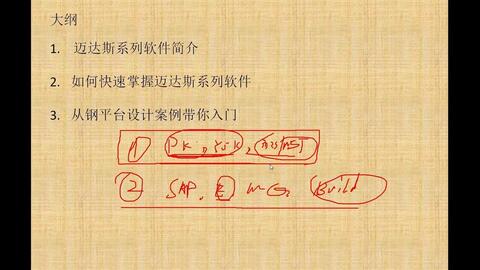 大纲
1. 迈达斯系列软件简介
2. 如何快速掌握迈达斯系列软件
3. 从钢平台设计案例带你入门
① PK, YJK,
② SAP. E MG. Build